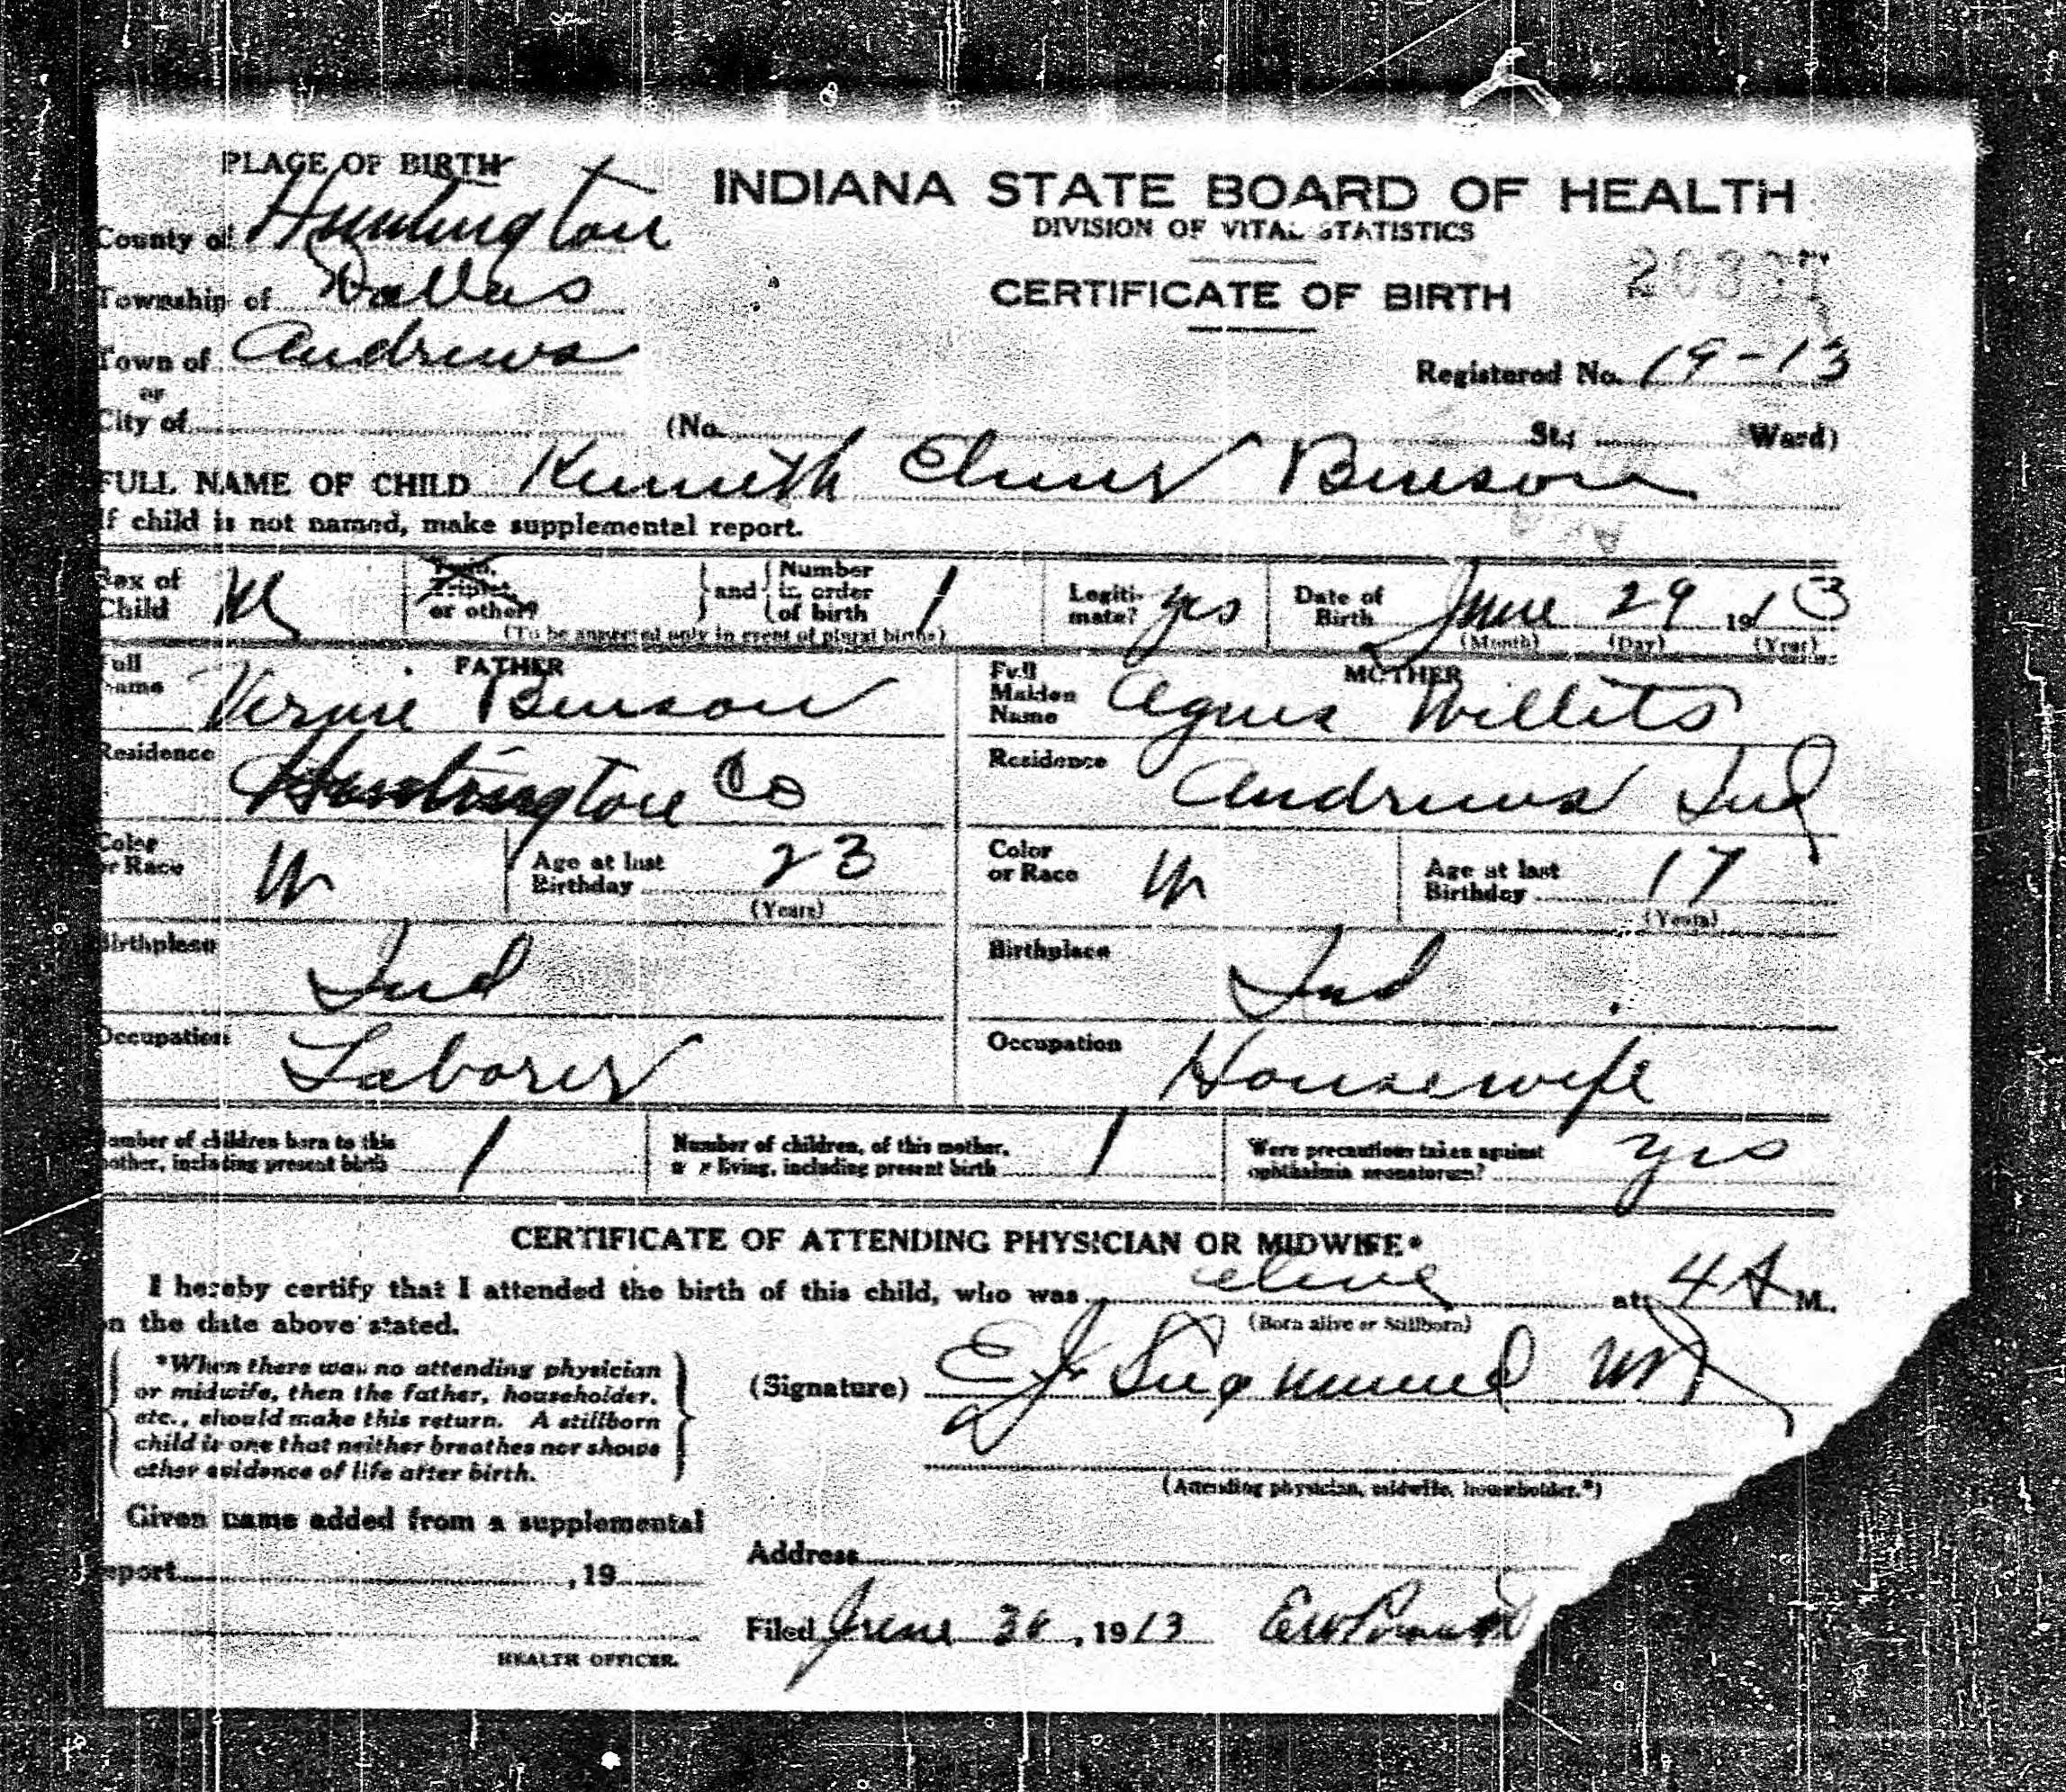 PLACE OF BIRTH
County of Huntington
Township of Dallas
Town of Andrews
or
City of
INDIANA STATE BOARD OF HEALTH
DIVISION OF VITAL STATISTICS
CERTIFICATE OF BIRTH
Registered No. 19-13
(No. St.; Ward)
FULL NAME OF CHILD Kenneth Elmer Benson
If child is not named, make supplemental report.
Sex of Child M
Twin, Triplet, or other? and Number in order of birth 1
(To be answered only in event of plural births)
Legitimate? yes
Date of Birth June 29 1913
(Month) (Day) (Year)
FATHER
Full Name Vernie Benson
Residence Huntington Co
Color or Race W
Age at last Birthday 23
(Years)
Birthplace Ind
Occupation Laborer
MOTHER
Full Maiden Name Agnes Willits
Residence Andrews Ind
Color or Race W
Age at last Birthday 17
(Years)
Birthplace Ind
Occupation Housewife
Number of children born to this mother, including present birth 1
Number of children, of this mother, now living, including present birth 1
Were precautions taken against ophthalmia neonatorum? yes
CERTIFICATE OF ATTENDING PHYSICIAN OR MIDWIFE*
I hereby certify that I attended the birth of this child, who was alive at 4 A M.,
on the date above stated.
(Born alive or Stillborn)
*When there was no attending physician
or midwife, then the father, householder,
etc., should make this return. A stillborn
child is one that neither breathes nor shows
other evidence of life after birth.
(Signature) E
(Attending physician, midwife, householder.*)
Given name added from a supplemental
report , 19
HEALTH OFFICER.
Address
Filed June 30, 1913